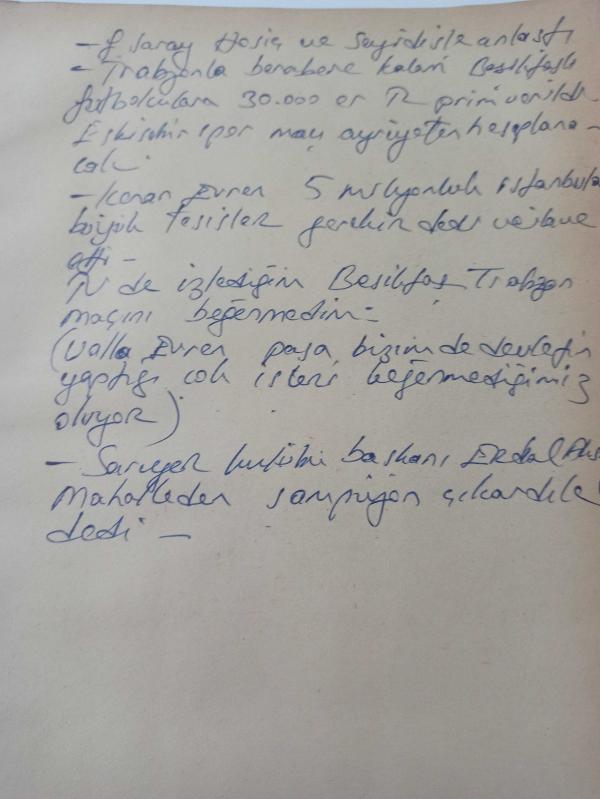 - G saray Hosiç ve Seyidisle anlaştı
- Trabzonla berabere kalan Beşiktaşlı
futbolculara 30.000 er TL prim verildi
Eskişehirspor maçı ayriyeten hesaplana-
cak.
- Kenan Evren 5 milyonluk istanbula
böyük tesisler gerekir dedi ve ilave
etti -
TV de izlediğim Beşiktaş Trabzon
maçını beğenmedim -
(Valla Evren paşa bizim de devletin
yaptığı çok işleri beğenmediğimiz
oluyor)
- Sarıyer kulübü başkanı Erdal
Mahalleden şampiyon çıkardılar
dedi -